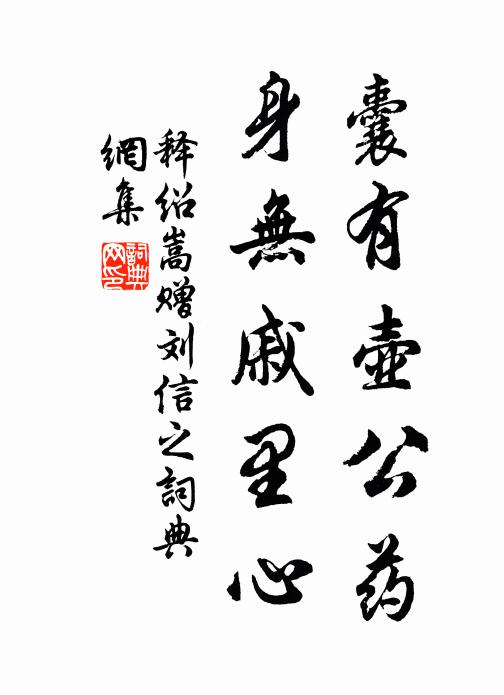 囊有壶公药
身無戚里心
释绍嵩赠刘信之詞典
網集
詞典
网印